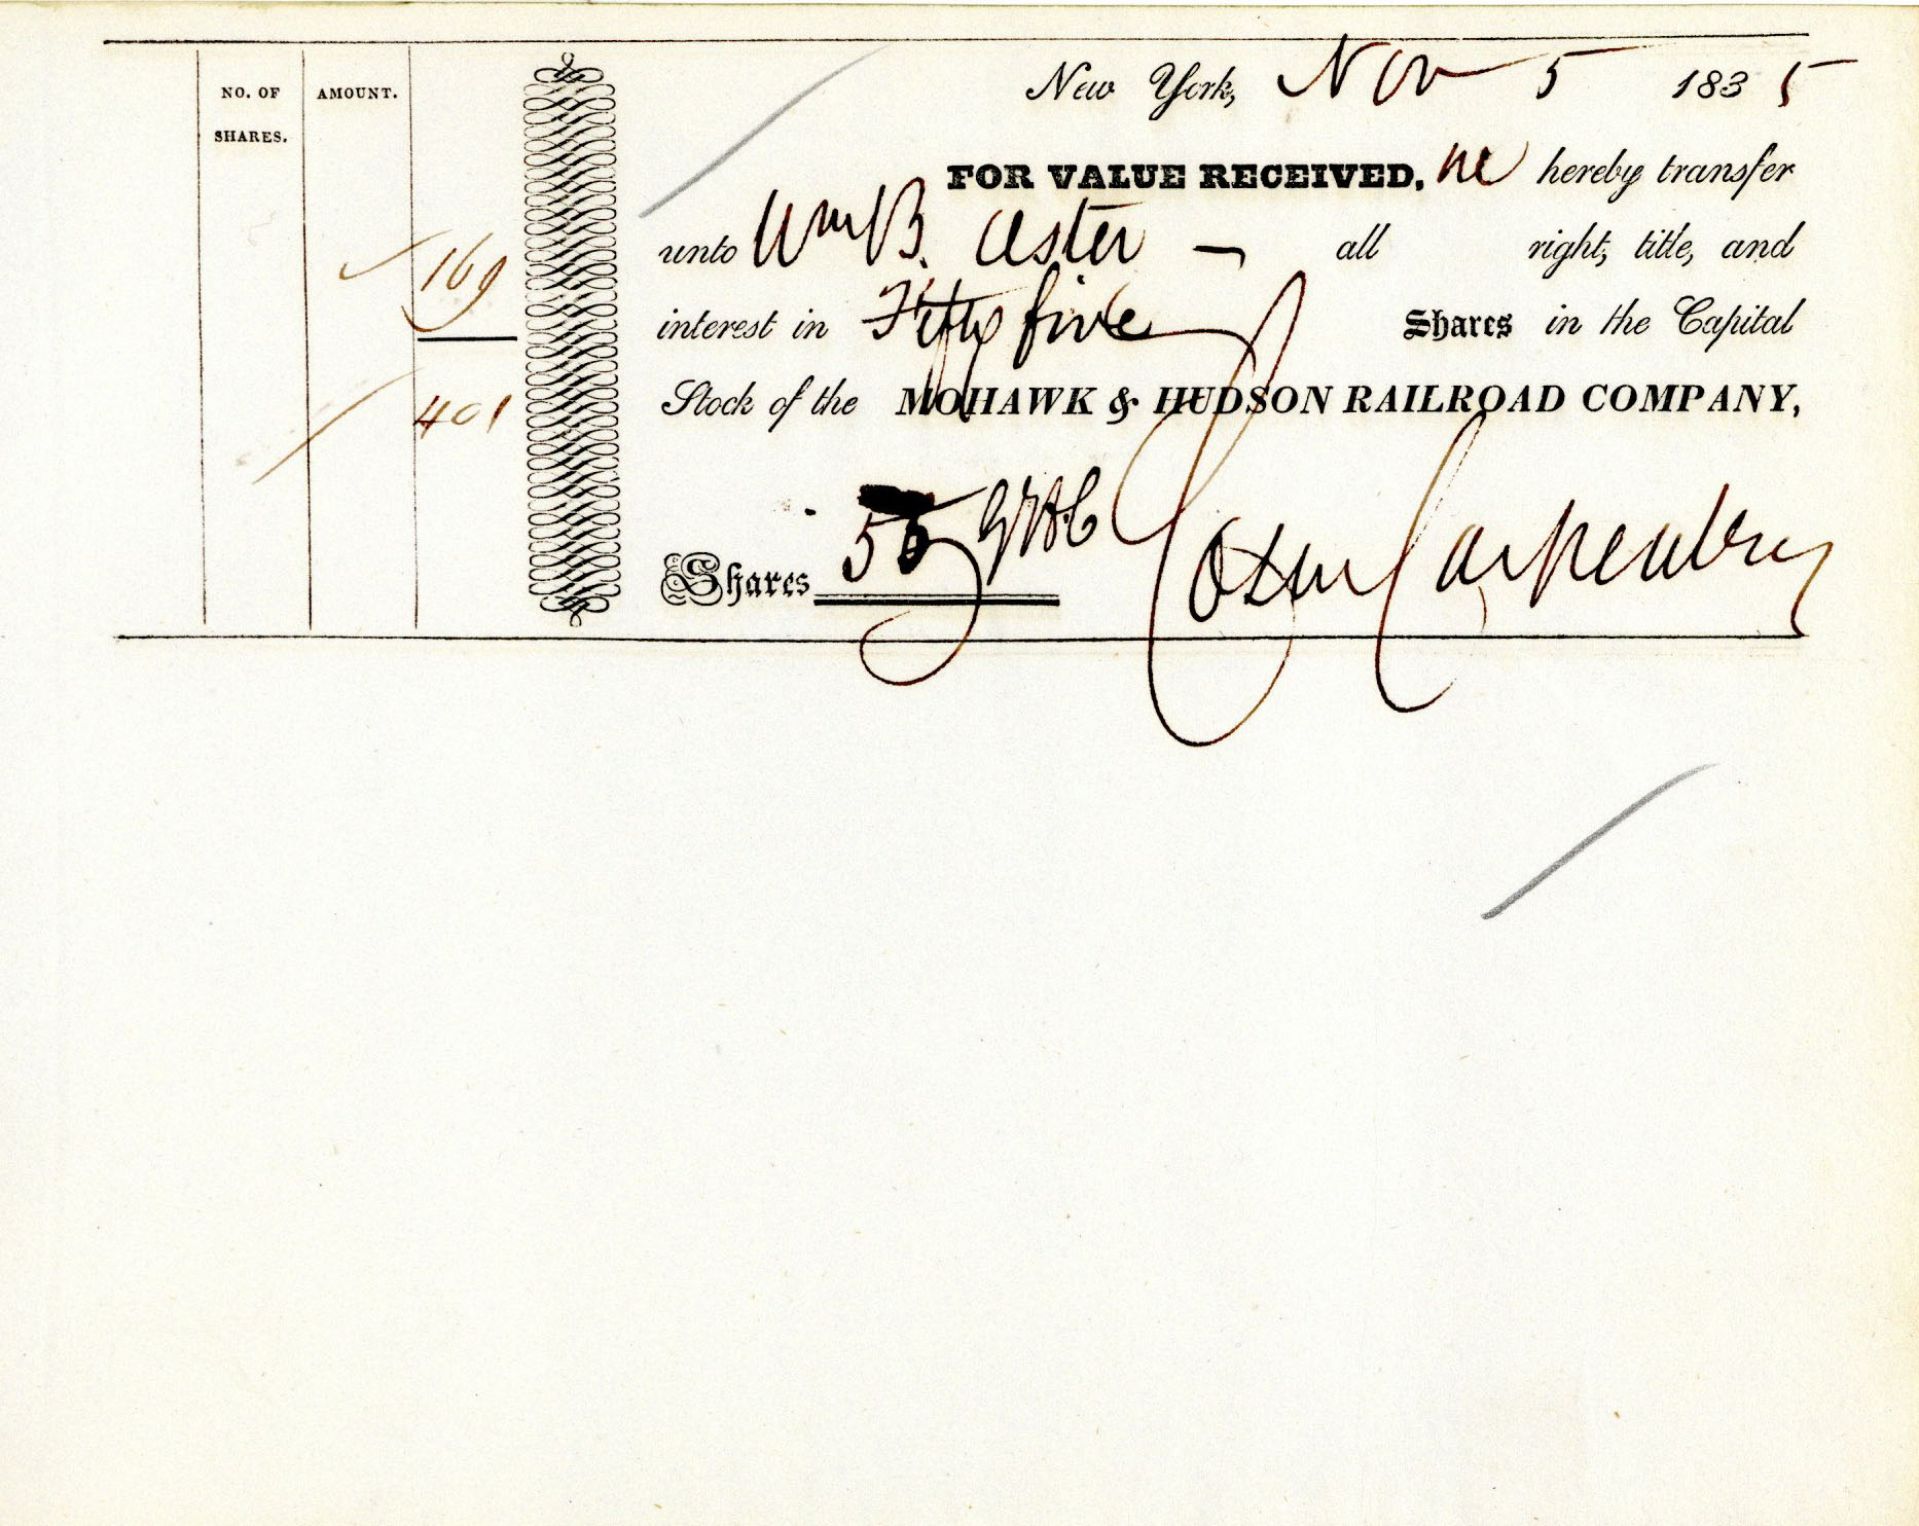 NO. OF
SHARES.
AMOUNT.
169
401
New York, Nov 5 1835
FOR VALUE RECEIVED, we hereby transfer
unto Wm B. Astor all right, title, and
interest in Fifty five Shares in the Capital
Stock of the MOHAWK & HUDSON RAILROAD COMPANY,
Shares 55
Carpenter